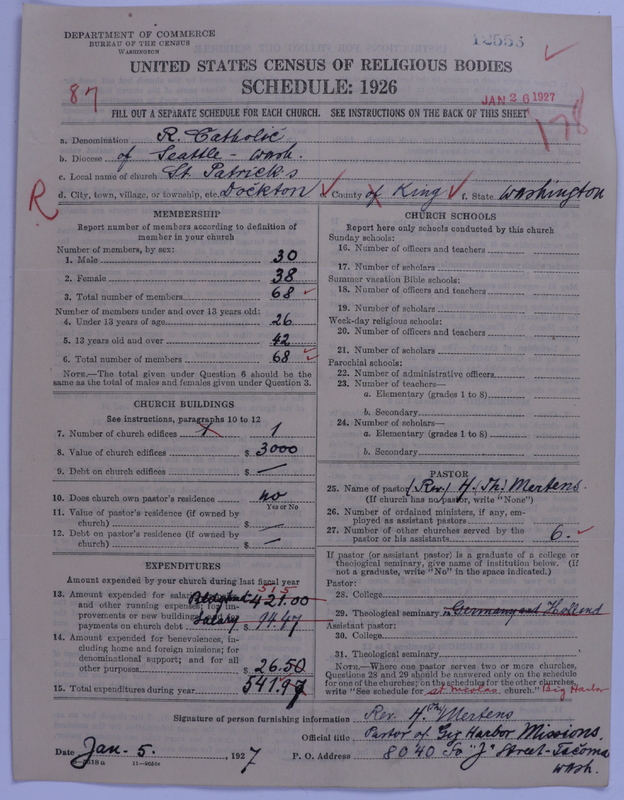 DEPARTMENT OF COMMERCE
BUREAU OF THE CENSUS
WASHINGTON
12553
UNITED STATES CENSUS OF RELIGIOUS BODIES
SCHEDULE: 1926
87
JAN 26 1927
FILL OUT A SEPARATE SCHEDULE FOR EACH CHURCH. SEE INSTRUCTIONS ON THE BACK OF THIS SHEET
178
a. Denomination R. Catholic
b. Diocese of Seattle - Wash.
c. Local name of church St Patrick's
R
d. City, town, village, or township, etc. Dockton County of King f. State Washington
MEMBERSHIP
Report number of members according to definition of
member in your church
Number of members, by sex:
1. Male 30
2. Female 38
3. Total number of members 68
Number of members under and over 13 years old:
4. Under 13 years of age 26
5. 13 years old and over 42
6. Total number of members 68
NOTE.—The total given under Question 6 should be the
same as the total of males and females given under Question 3.
CHURCH BUILDINGS
See instructions, paragraphs 10 to 12
7. Number of church edifices 1 1
8. Value of church edifices $ 3000
9. Debt on church edifices $ —
10. Does church own pastor's residence no
Yes or No
11. Value of pastor's residence (if owned by
church) $ —
12. Debt on pastor's residence (if owned by
church) $ —
EXPENDITURES
Amount expended by your church during last fiscal year
515
13. Amount expended for salaries 421.00
and other running expenses; for im-
provements or new buildings Salary
payments on church debt $ 94.47
14. Amount expended for benevolences, in-
cluding home and foreign missions; for
denominational support; and for all
other purposes $ 26.50
15. Total expenditures during year 541.97
CHURCH SCHOOLS
Report here only schools conducted by this church
Sunday schools:
16. Number of officers and teachers
17. Number of scholars
Summer vacation Bible schools:
18. Number of officers and teachers
19. Number of scholars
Week-day religious schools:
20. Number of officers and teachers
21. Number of scholars
Parochial schools:
22. Number of administrative officers
23. Number of teachers—
a. Elementary (grades 1 to 8)
b. Secondary
24. Number of scholars—
a. Elementary (grades 1 to 8)
b. Secondary
PASTOR
25. Name of pastor (Rev) H. Th. Mertens
(If church has no pastor, write "None")
26. Number of ordained ministers, if any, em-
ployed as assistant pastors
27. Number of other churches served by the
pastor or his assistants 6.
If pastor (or assistant pastor) is a graduate of a college or
theological seminary, give name of institution below. (If
not a graduate, write "No" in the space indicated.)
Pastor:
28. College
29. Theological seminary in Germany and Holland
Assistant pastor:
30. College
31. Theological seminary
NOTE.—Where one pastor serves two or more churches,
Questions 28 and 29 should be answered only on the schedule
for one of the churches; on the schedules for the other churches,
write "See schedule for St Nicolas church." Gig Harbor
Signature of person furnishing information Rev. H. Th Mertens
Official title Pastor of Gig Harbor Missions.
Date Jan. 5. , 1927 P. O. Address 8040 So "J" Street - Tacoma
Wash.